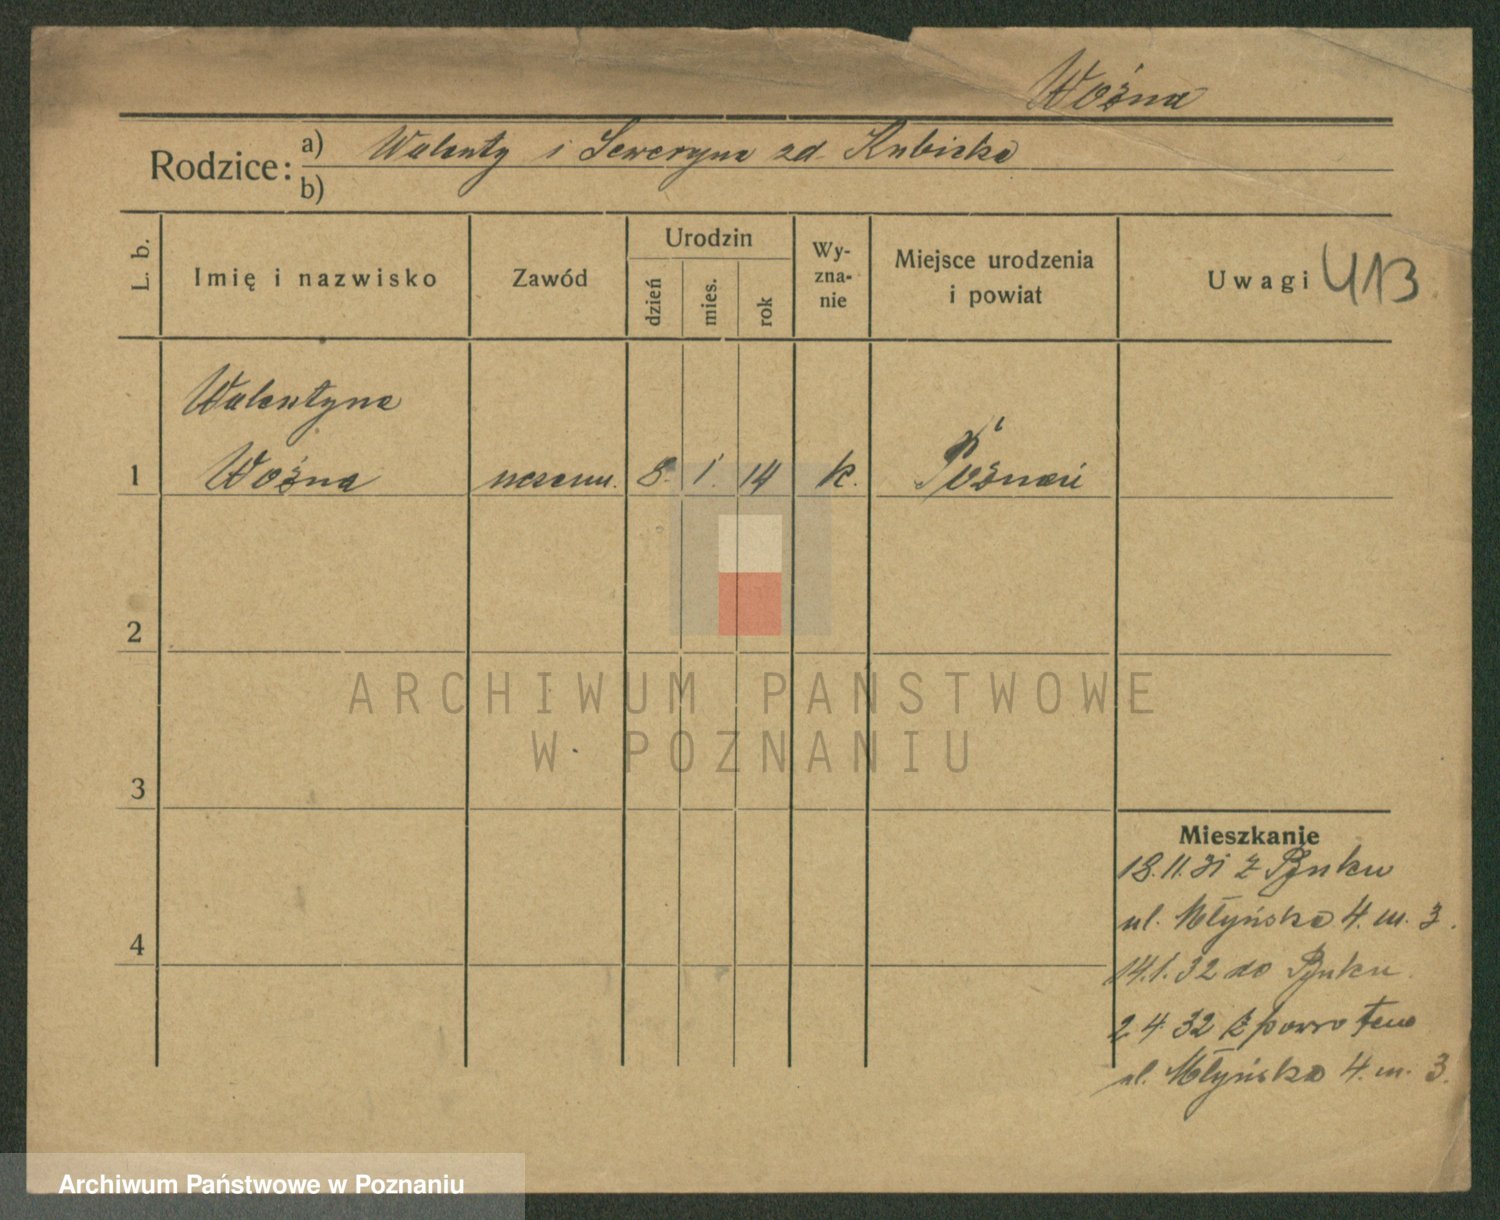 Woźna
Rodzice: a) Walenty i Seweryna zd. Kubicka
b)
L. b.
Imię i nazwisko
Zawód
Urodzin
dzień
mies.
rok
Wy-
zna-
nie
Miejsce urodzenia
i powiat
Uwagi 413
Walentyna
1 Woźna 8. 1. 14 k. Poznań
2
ARCHIWUM PAŃSTWOWE
W POZNANIU
3
Mieszkanie
18.11.31 z Rynku
ul. Młyńska 4. m. 3.
4
14.1.32 do Rynku.
2 4 32 z powrotem
ul. Młyńska 4. m. 3.
Archiwum Państwowe w Poznaniu